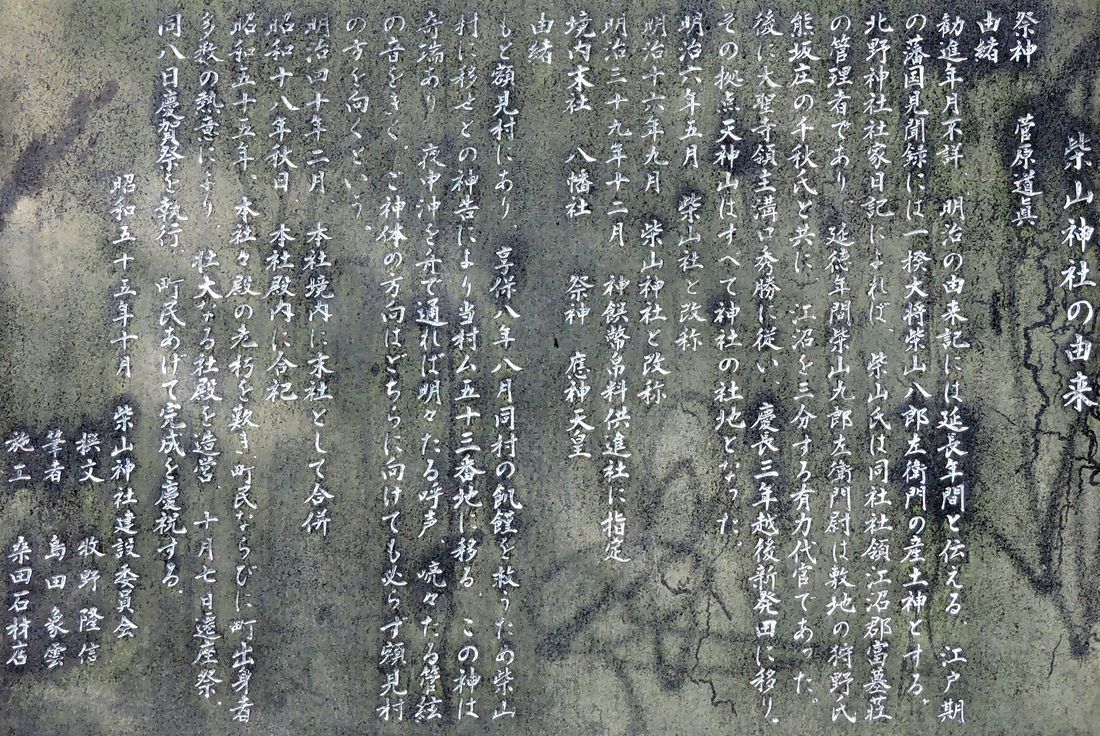 柴山神社の由来
祭神　菅原道眞
由緒
勧進年月不詳、明治の由来記には延長年間と伝える。江戸期
の藩国見聞録には一揆大将柴山八郎左衛門の産土神とする。
北野神社社家日記によれば、柴山氏は同社社領江沼郡富墓荘
の管理者であり、延徳年間柴山九郎左衛門尉は敷地の狩野氏
熊坂庄の千秋氏と共に、江沼を三分する有力代官であった。
後に大聖寺領主溝口秀勝に従い、慶長三年越後新発田に移り。
その拠点天神山はすべて神社の社地となった。
明治六年五月　柴山社と改称
明治十六年九月　柴山神社と改称
明治三十九年十二月　神饌幣帛料供進社に指定
境内末社　八幡社　祭神　應神天皇
由緒
もと額見村にあり、享保八年八月同村の飢饉を救うため柴山
村に移せとの神告により当村ム五十三番地に移る。この神は
奇瑞あり、夜中沖を舟で通れば明々たる呼声、喨々たる管絃
の音をきく、ご神体の方向はどちらに向けても必らず額見村
の方を向くという。
明治四十年二月、本社境内に末社として合併
昭和十八年秋日、本社殿内に合祀
昭和五十五年、本社々殿の老朽を歎き、町民ならびに町出身者
多数の熱意により、壮大なる社殿を造営、十月七日遷座祭、
同八日慶賀祭を執行、町民あげて完成を慶祝する。
昭和五十五年十月　柴山神社建設委員会
撰文　牧野隆信
筆者　島田象雲
施工　桑田石材店